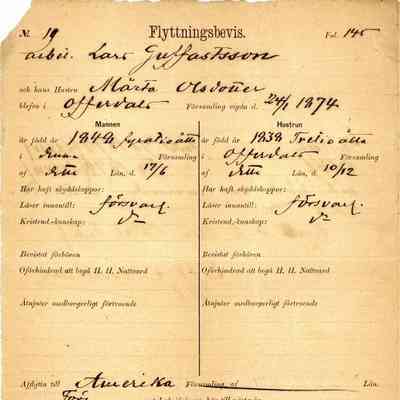 № 19 Flyttningsbevis. Fol. 145
arbet. Lars Gustafsson
och hans Hustru Märta Olsdotter
blefvo i Offerdals Församling vigda d. 24/1 1874
Mannen Hustrun
är född år 1848 fyratioåtta är född år 1838 Tretioåtta
i Församling i Offerdals Församling
af detta Län, d. 17/6 af detta Län, d. 10/12
Har haft skyddskoppor: Har haft skyddskoppor:
Läser innantill: försvarl. Läser innantill: försvarl.
Kristend.-kunskap: Do Kristend.-kunskap: Do
Bevistat förhören Bevistat förhören
Oförhindrad att begå H. H. Nattvard Oförhindrad att begå H. H. Nattvard
Åtnjuter medborgerligt förtroende Åtnjuter medborgerligt förtroende
Afflytta till Amerika Församling af Län.